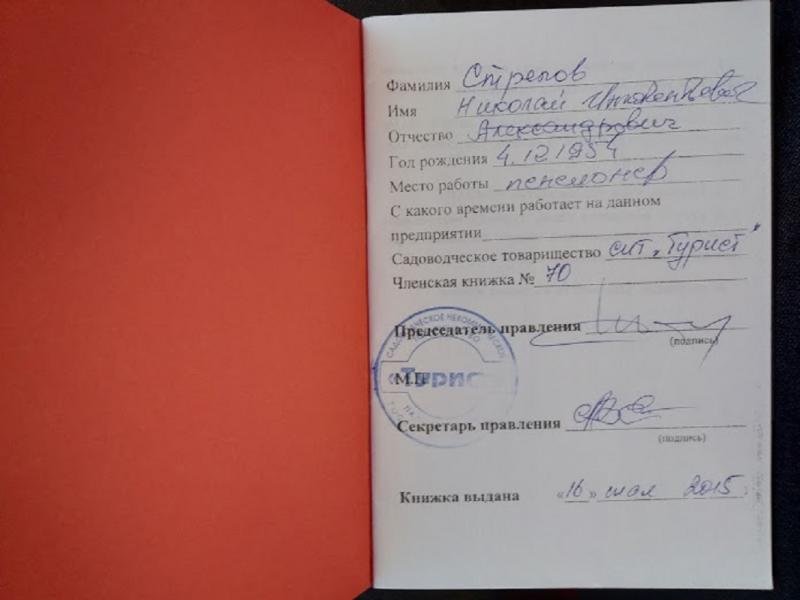 Фамилия Стрелов
Имя Николай Инокентьевич
Отчество Александрович
Год рождения 4.12.1954
Место работы пенсионер
С какого времени работает на данном
предприятии
Садоводческое товарищество снт „Турист"
Членская книжка № 70
Председатель правления
(подпись)
САДОВОДЧЕСКОЕ НЕКОММЕРЧЕСКОЕ
М.П.
«Турист
Секретарь правления
(подпись)
Книжка выдана «16» мая 2015